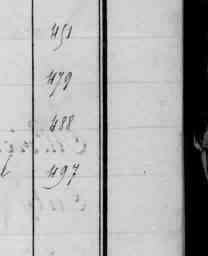 451
479
488
497